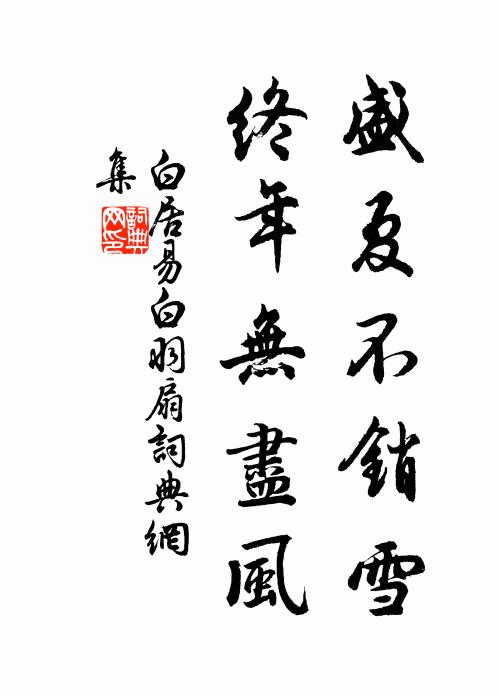 盛夏不銷雪
終年無盡風
白居易白羽扇詞典網
集
詞典
网印